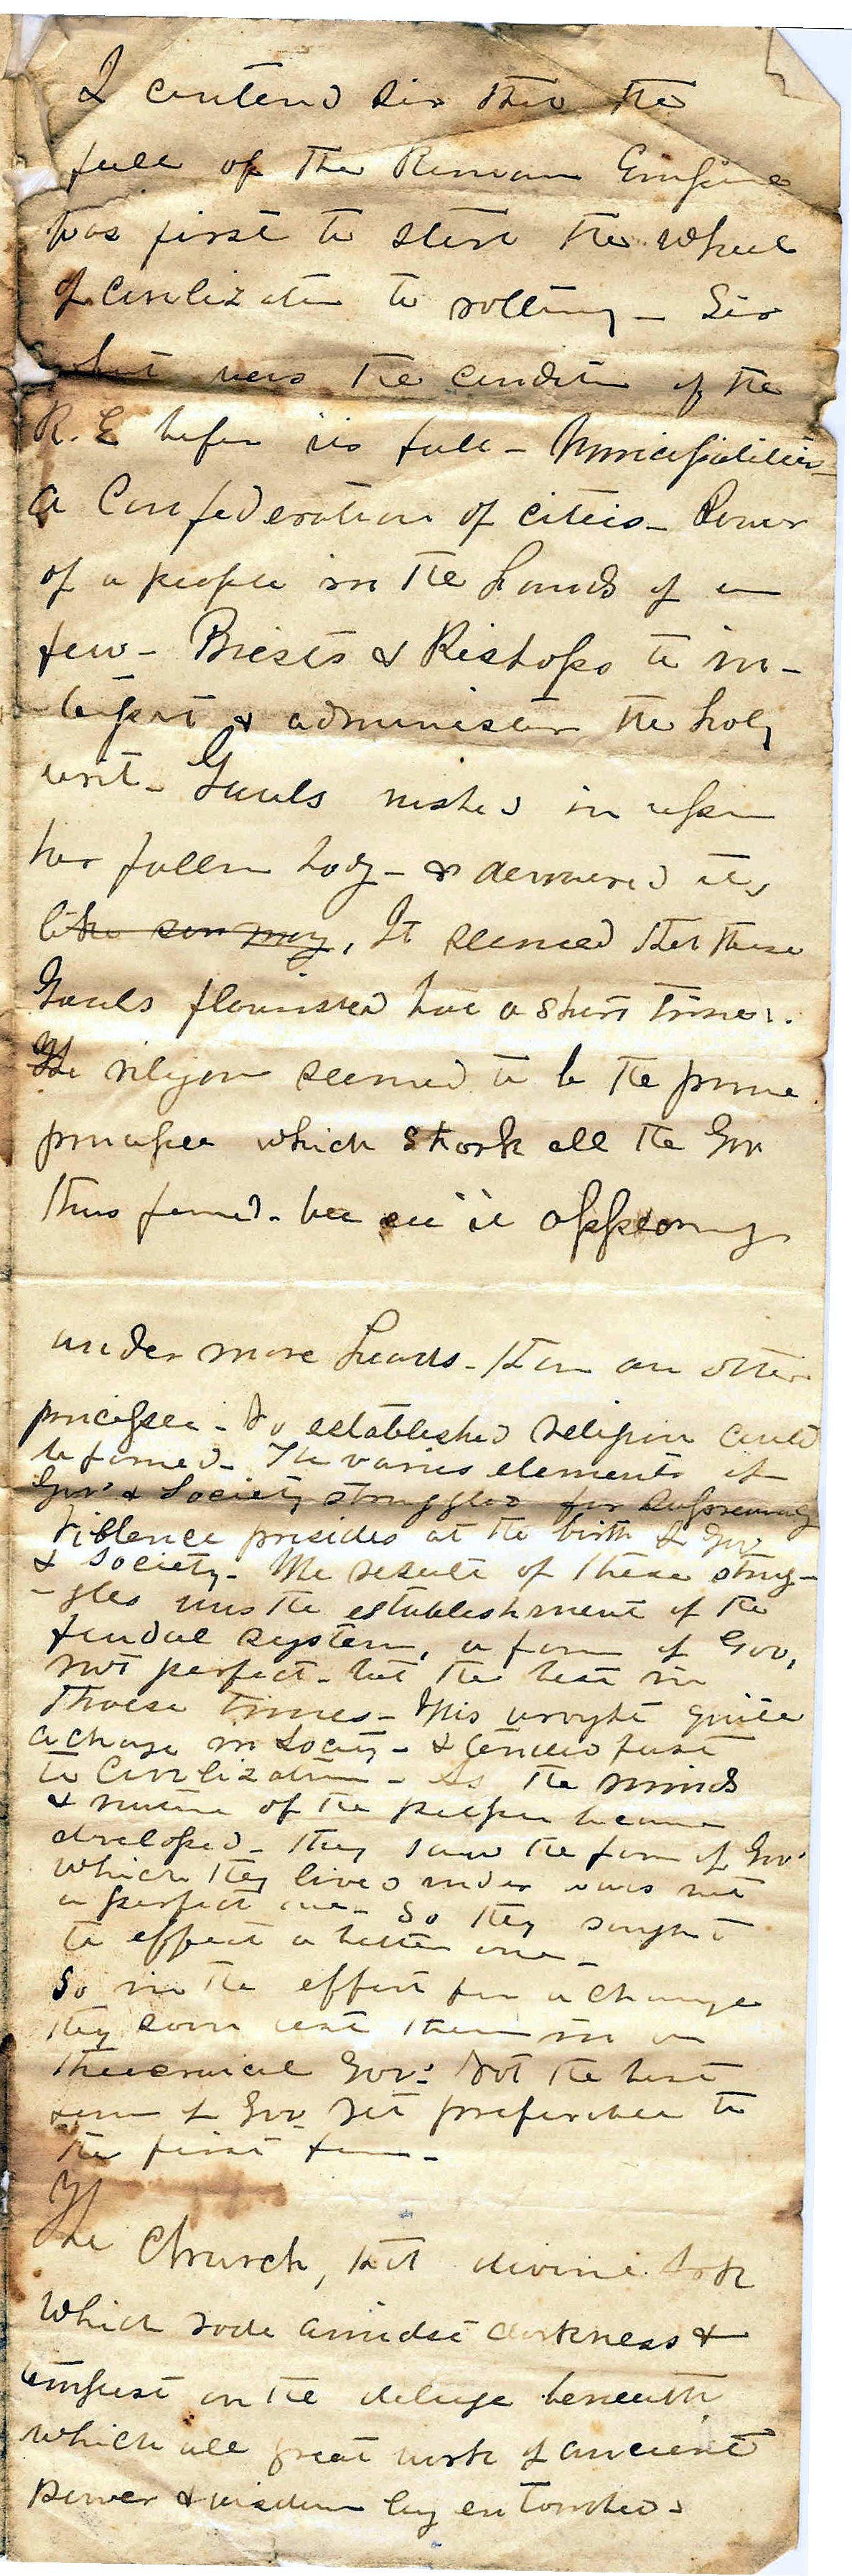 I contend Sir that the
fall of the Roman Empire
was first to start the wheel
of civilization to rolling - Sir
what was the condition of the
R. E before its fall - Municipalities -
a Confederation of cities - Power
of a people in the hands of a
few - Priests & Bishops to in-
terpret & administer the holy
writ - Gauls rushed in upon
her fallen body - & devoured it,
like . It seemed that these
Gauls flourished but a short time.
The religion seemed to be the prime
principle which shook all the Gov
thus formed - but see it appearing
under more heads - than an other
principle - No established religion could
be formed - The various elements of
Gov't & Society struggled for supremacy
Violence presides at the birth of Gov
& Society - The result of these strug-
-gles was the establishment of the
feudal system, a form of Gov,
not perfect - but the best in
those times - This wrought quite
a change in Society - & tended fast
to Civilization - As the minds
& nature of the people became
developed - they saw the form of Gov't
which they lived under was not
a perfect one - So they sought
to effect a better one -
So in the effort for a change
they soon cast them in a
theocratical Gov't Not the best
form of Gov yet preferable to
the first form -
The Church, that divine Ark
which rode amidst darkness &
tempest on the deluge beneath
which all great work of ancient
power & wisdom lay entombed -